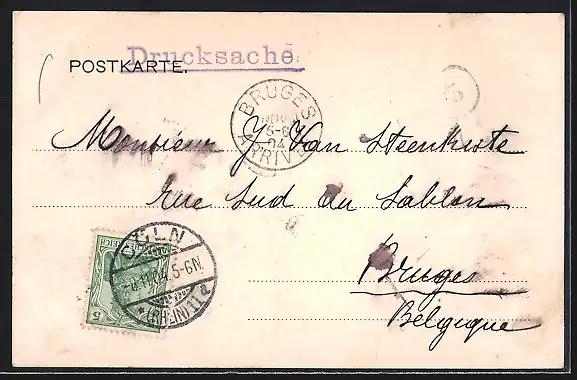 Drucksache.
POSTKARTE.
BRUGES
5-6
04
ARRIVÉE
Monsieur J Van Steenkiste
Rue Sud du Sablon
Bruges
Belgique
CÖLN
5-6N.
* (RHEIN) 11 e
5